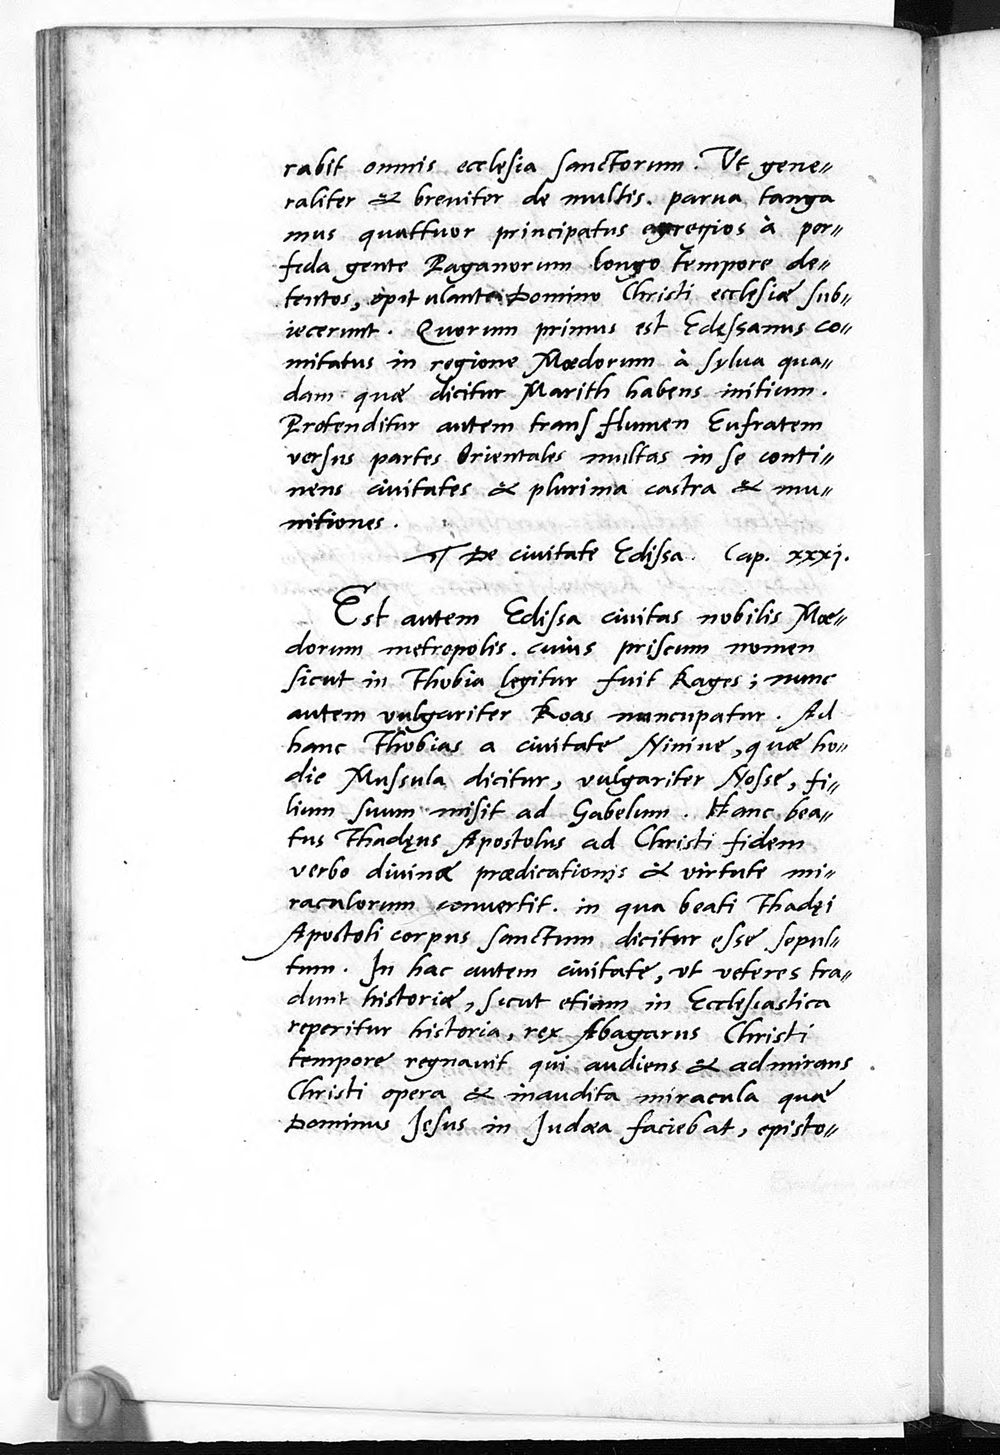 rabit omnis ecclesia sanctorum. Ut gene=
raliter & breviter de multis. parva tanga
mus quattuor principatus egregios à per=
feda gente Paganorum longo tempore de=
tentos, opitulante Domino Christi ecclesiæ sub=
iecerunt. Quorum primus est Edęssanus co=
mitatus in regione Mœdorum à sylva qua=
dam quæ dicitur Marith habens initium.
Protenditur autem trans flumen Eufratem
versus partes Orientales multas in se conti=
nens civitates & plurima castra & mu=
nitiones.
De civitate Edissa. Cap. xxxj.
Est autem Edissa civitas nobilis Mœ=
dorum metropolis. cuius priscum nomen
sicut in Thobia legitur fuit Rages; nunc
autem vulgariter Roas nuncupatur. Ad
hanc Thobias a civitate Ninive, quæ ho=
die Mussula dicitur, vulgariter Nosse, fi=
lium suum misit ad Gabelum. Hanc bea=
tus Thadęus Apostolus ad Christi fidem
verbo divinæ prædicationis & virtute mi=
raculorum convertit. in qua beati Thadęi
Apostoli corpus sanctum dicitur esse sepul=
tum. In hac autem civitate, ut veteres tra=
dunt historiæ, sicut etiam in Ecclesiastica
reperitur historia, rex Abagarus Christi
tempore regnavit qui audiens & admirans
Christi opera & inaudita miracula quæ
Dominus Jesus in Judæa faciebat, episto=